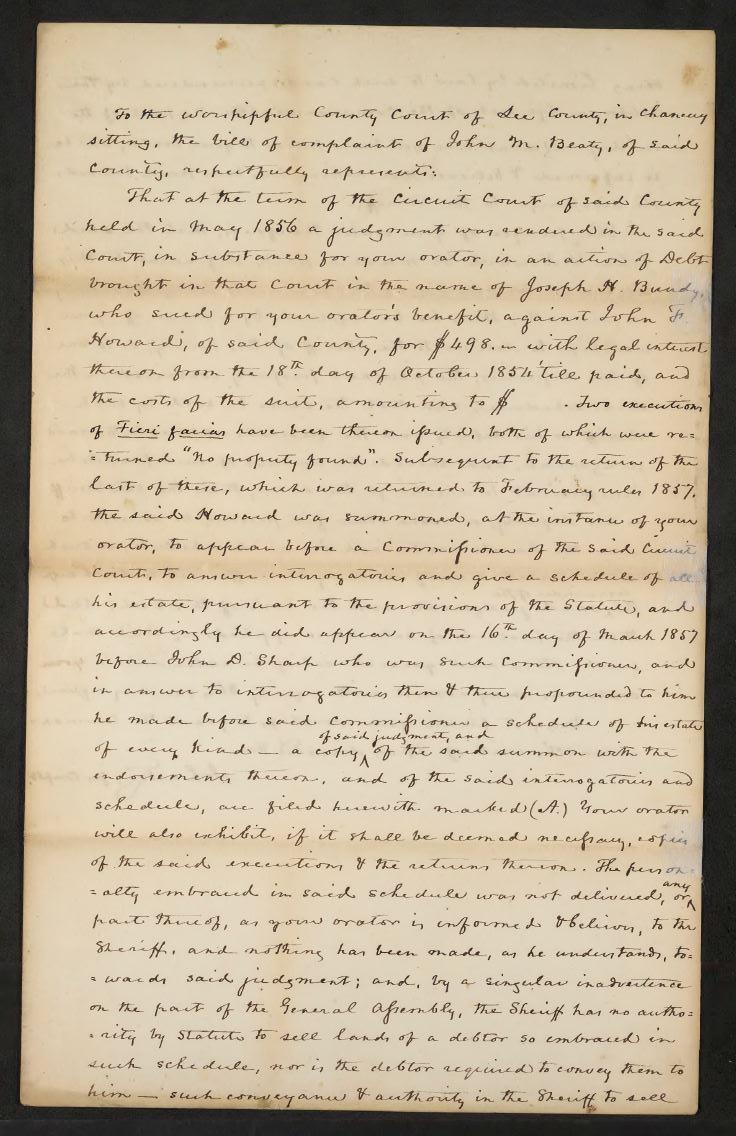 To the worshipful County Court of Lee County, in Chancery
sitting, the bill of complaint of John M. Beaty, of said
County, respectfully represents:
That at the term of the Circuit Court of said County
held in May 1856 a judgment was rendered in the said
Court, in substance for your orator, in an action of Debt
brought in that Court in the name of Joseph H. Bundy,
who sued for your orator's benefit, against John F.
Howard, of said County, for $498. with legal interest
thereon from the 18th day of October 1854 'till paid, and
the costs of the suit, amounting to $ . Two executions
of Fieri facias have been thereon issued, both of which were re=
=turned "No property found". Subsequent to the return of the
last of these, which was returned to February rules 1857,
the said Howard was summoned, at the instance of your
orator, to appear before a Commissioner of the said Circuit
Court, to answer interrogatories and give a schedule of all
his estate, pursuant to the provisions of the Statute, and
accordingly he did appear on the 16th day of March 1857
before John D. Sharp who was such Commissioner, and
in answer to interrogatories then & there propounded to him
he made before said Commissioner a schedule of his estate
of said judgment, and
of every kind — a copy ^ of the said summon with the
endorsements thereon, and of the said interrogatories and
schedule, are filed herewith marked (A.) Your orator
will also exhibit, if it shall be deemed necessary, copies
of the said executions & the returns thereon. The person=
any
=alty embraced in said schedule was not delivered, or ^
part thereof, as your orator is informed & believes, to the
Sheriff, and nothing has been made, as he understands, to=
=wards said judgment; and, by a singular inadvertence
on the part of the General Assembly, the Sheriff has no autho=
=rity by Statute to sell lands of a debtor so embraced in
such schedule, nor is the debtor required to convey them to
him — such conveyance & authority in the Sheriff to sell